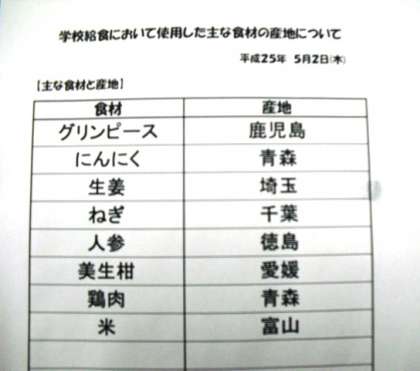 学校給食において使用した主な食材の産地について
平成25年 5月2日(木)
【主な食材と産地】
食材 産地
グリンピース 鹿児島
にんにく 青森
生姜 埼玉
ねぎ 千葉
人参 徳島
美生柑 愛媛
鶏肉 青森
米 富山